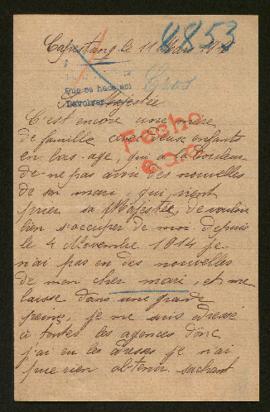 Capestang, le 11 Mars 19
4853
Que se hace aci
Gros
Devolver
Majestée
C'est encore une mère
de famille avec deux enfants
en bas-age, qui a la douleur
de ne pas avoir des nouvelles
de son mari, qui vient
prier sa Majestée, de vouloir
bien s'occuper de moi. depuis
le 4 Novembre 1914 je
n'ai pas eu des nouvelles
de mon cher mari, et me
laisse dans une grande
peine, je me suis adressé
à toutes les agences donc
j'ai eu les adresses je n'ai
pue rien obtenir, sachant
Fecho